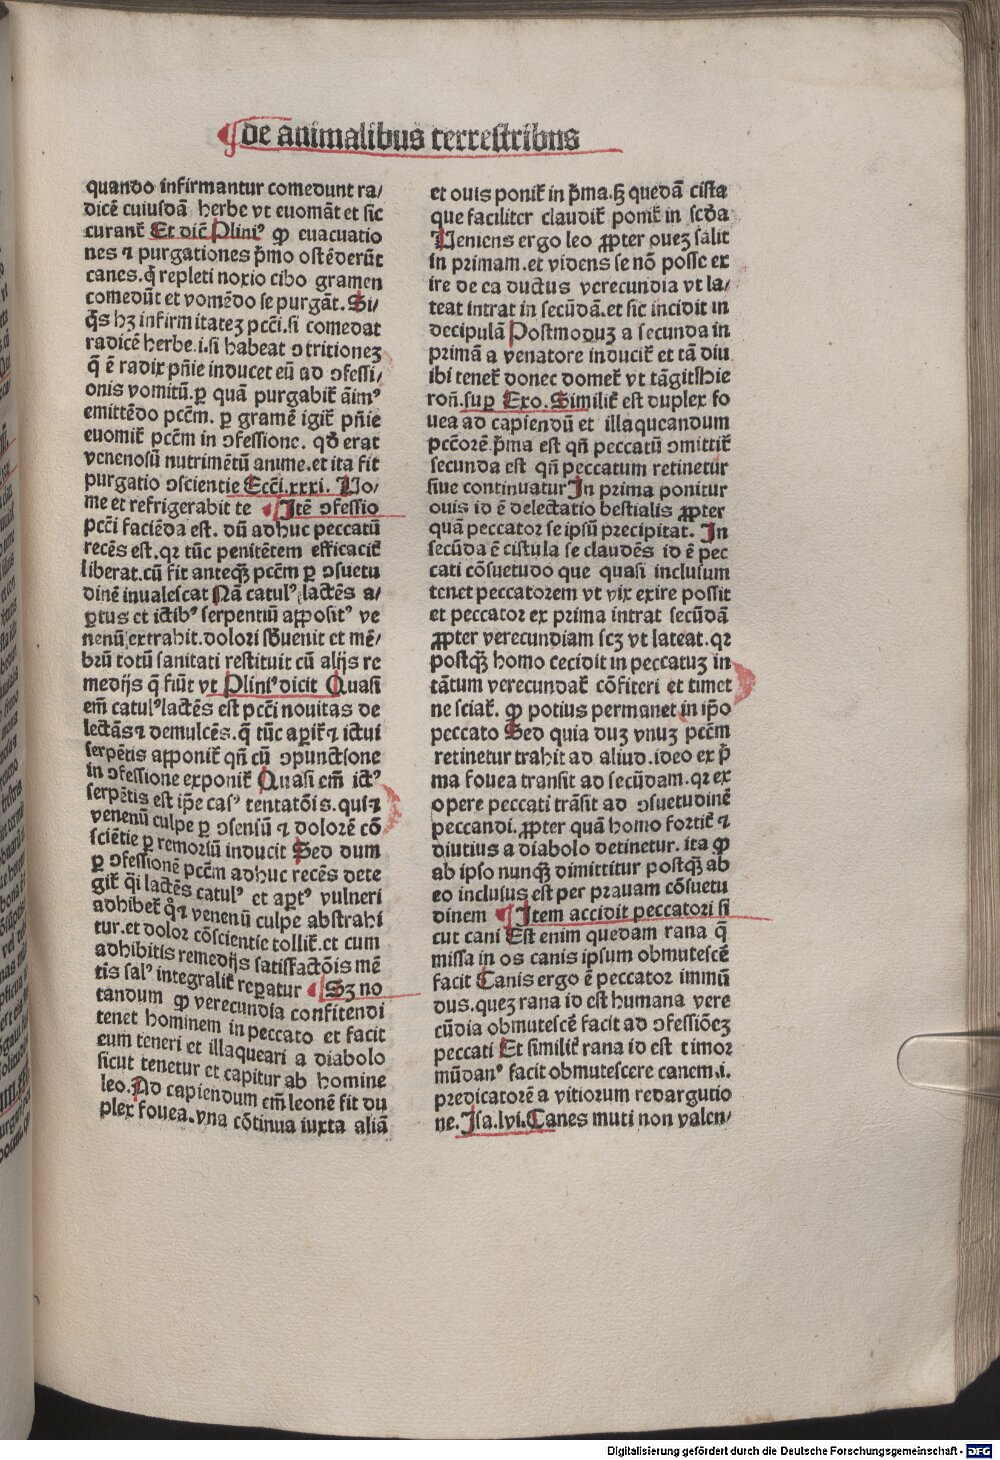 de animalibus terrestribus
quando infirmantur comedunt ra/
dicē cuiusdā herbe vt euomāt et sic
curant᷑ Et diē Pliniꝰ ꝙ euacuatio
nes ⁊ purgationes p̄mo ostēderūt
canes.q̄ repleti noxio cibo gramen
comedūt et vomēdo se purgāt. Si/
q̄s hꝫ infirmitateꝫ pctī.si comedat
radicē herbe.i.si habeat ↄtritioneꝫ
q̄ ē radix pn̄ie inducet eū ad ↄfessi/
onis vomitū.ꝑ quā purgabit᷑ āimꝰ
emittēdo pctm̄. ꝑ gramē igit᷑ pn̄ie
euomit᷑ pctm̄ in ↄfessione. qd̄ erat
venenosū nutrimētū anime.et ita fit
purgatio ↄscientie Eccī.xxxi. Uo/
me et refrigerabit te ¶ Itē ↄfessio
pctī faciēda est. dū adhuc peccatū
recēs est.qꝛ tūc penitētem efficacit᷑
liberat.cū fit anteqꝫ̄ pctm̄ ꝑ ↄsuetu
dinē inualescat Nā catulꝰ lactēs a/
ꝑtus et ictibꝰ serpentiū apposit᷒ ve
nenū extrahit.dolori sb̄uenit et mē/
brū totū sanitati restituit cū alijs re
medijs q̄ fiūt vt Pliniꝰ dicit Quasi
em̄ catulꝰ lactēs est pctī nouitas de
lectās ⁊ demulcēs.q̄ tūc aꝑit᷑ ⁊ ictui
serpētis apponit᷑ qn̄ cū ↄpunctione
in ↄfessione exponit᷑ Quasi em̄ ictꝰ
serpētis est ip̄e casꝰ tentatōis.qui ⁊
venenū culpe ꝑ ↄsensū ⁊ dolorē cō
sciētie ꝑ remorsū inducit Sed dum
ꝑ ↄfessionē pctm̄ adhuc recēs dete
git᷑ q̄i lactēs catulꝰ et aꝑtꝰ vulneri
adhibet᷑ q̄ ⁊ venenū culpe abstrahi
tur.et dolor cōscientie tollit᷑.et cum
adhibitis remedijs satisfactōis mē
tis salꝰ integralit᷑ reꝑatur ¶ Sꝫ no
tandum ꝙ verecundia confitendi
tenet hominem in peccato et facit
eum teneri et illaqueari a diabolo
sicut tenetur et capitur ab homine
leo.Ad capiendum em̄ leonē fit du
plex fouea.vna cōtinua iuxta aliā
et ouis ponit᷑ in p̄ma.ꜩ quedā cista
que faciliter claudit᷑ ponit᷑ in scd̄a
Ueniens ergo leo ꝓpter oueꝫ salit
in primam.et videns se nō posse ex
ire de ea ductus verecundia vt la/
teat intrat in secūdā.et sic incidit in
decipulā Postmoduꝫ a secunda in
primā a venatore inducit᷑ et tā diu
ibi tenet᷑ donec domet᷑ vt tāgit Hie
ron̄.suꝑ Exo. Similit᷑ est duplex fo
uea ad capiendū et illaqueandum
pctōrē.p̄ma est qn̄ peccatū ↄmittit᷑
secunda est qn̄ peccatum retinetur
siue continuatur In prima ponitur
ouis id ē delectatio bestialis ꝓpter
quā peccator se ipsū precipitat. In
secūda ē cistula se claudēs id ē pec
cati cōsuetudo que quasi inclusum
tenet peccatorem vt vix exire possit
et peccator ex prima intrat secūdā
ꝓpter verecundiam scꝫ vt lateat.qꝛ
postqꝫ̄ homo cecidit in peccatuꝫ in
tātum verecundat᷑ cōfiteri et timet
ne sciat᷑. ꝙ potius permanet in ip̄o
peccato Sed quia duꝫ vnuꝫ pctm̄
retinetur trahit ad aliud.ideo ex p̄
ma fouea transit ad secūdam.qꝛ ex
opere peccati trāsit ad ↄsuetudinē
peccandi.ꝓpter quā homo fortit᷑ ⁊
diutius a diabolo detinetur. ita ꝙ
ab ipso nunqꝫ̄ dimittitur postqꝫ̄ ab
eo inclusus est per prauam cōsuetu
dinem ¶ Item accidit peccatori si
cut cani Est enim quedam rana q̄
missa in os canis ipsum obmutescē
facit Canis ergo ē peccator immū
dus.queꝫ rana id est humana vere
cūdia obmutescē facit ad ↄfessiōeꝫ
peccati Et similit᷑ rana id est timor
mūdanꝰ facit obmutescere canem.i.
predicatorē a vitiorum redargutio
ne.Isa.lvi.Canes muti non valen/
Digitalisierung gefördert durch die Deutsche Forschungsgemeinschaft - DFG